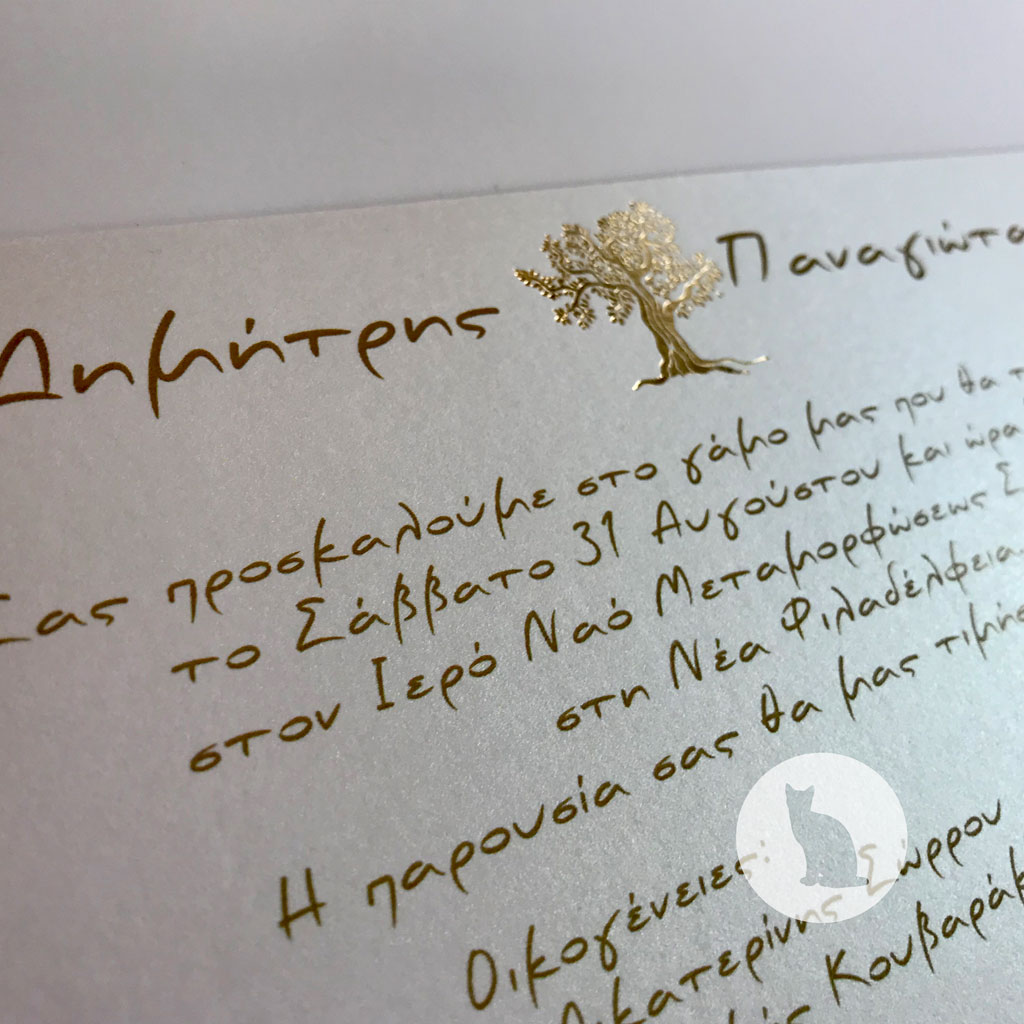 Δημήτρης Παναγιώτα
Σας προσκαλούμε στο γάμο μας που θα
το Σάββατο 31 Αυγούστου και ώρα
στον Ιερό Ναό Μεταμορφώσεως Σ
στη Νέα Φιλαδέλφεια.
Η παρουσία σας θα μας τιμήσ
Οικογένειες:
Αικατερίνης Σώρρου
Κουβαράκ